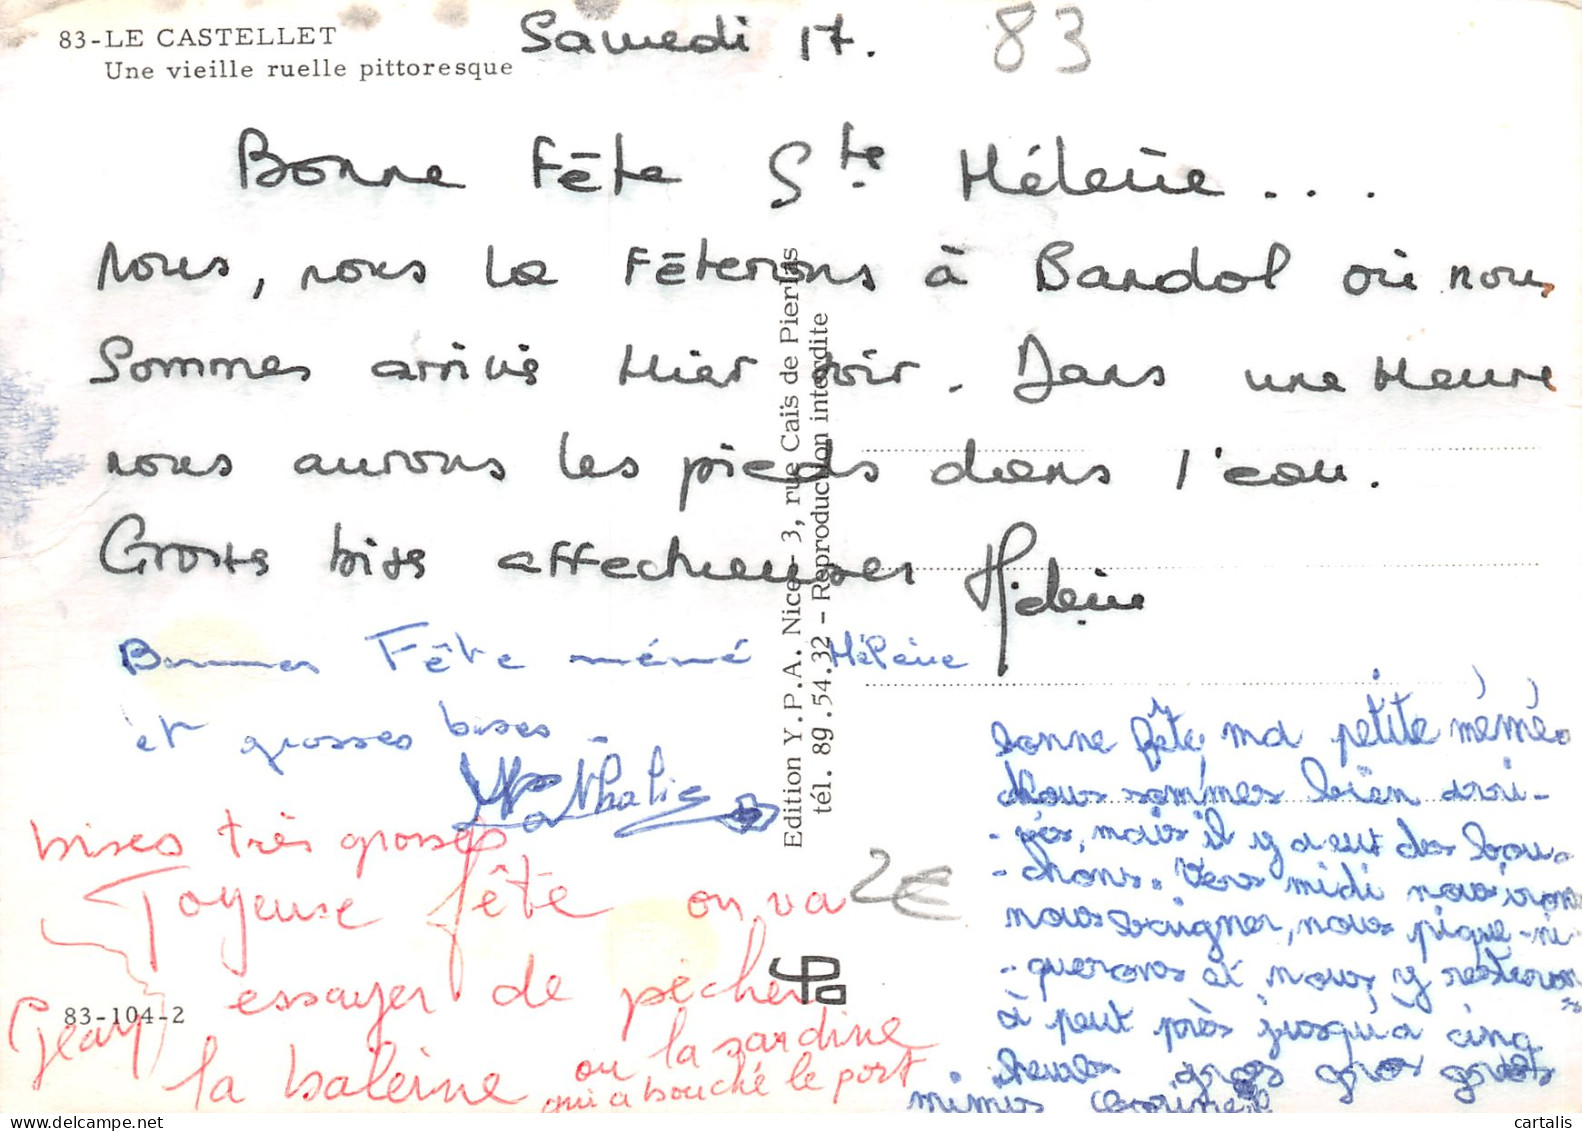 83-LE CASTELLET
Une vieille ruelle pittoresque
Samedi 17.
83
Bonne Fête Ste Hélène...
Nous, nous la Fêterons à Bandol où nous
Sommes arrivés Hier soir. Dans une Heure
nous aurons les pieds dans l'eau.
Grosses bises affectueuses Hélène
Bonne Fête mémé Hélène
et grosses bises.
Nathalie
bises très grosses
Joyeuse fête on va
essayer de pêcher
la baleine ou la sardine
qui a bouché le port
Jean
bonne fête, ma petite mémé.
Nous sommes bien arri-
-vés, mais il y a eut des bou-
-chons. Vers midi nous irons
nous baigner, nous pique-ni-
-querons et nous y resterons
à peut près jusqu'à cinq
heures gros gros gros
mimis Corinne
2€
83-104-2
Edition Y.P.A. Nice - 3, rue Caïs de Pierlas
tél. 89.54.32 - Reproduction interdite
YPa
cartalis